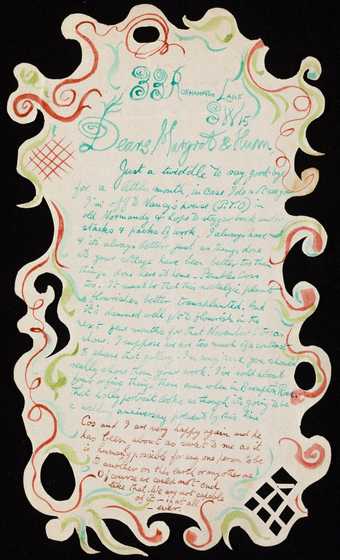 33A Roehampton Lane
SW15
Dears, Margaret &
Just a twiddle to say good-bye
for a little month, in case I do
I'm off to Nancy's house (P.T.O) in
old Normandy & hope to stagger back under
stacks & packs of work. I always have
& it's always better just as things done
at your cottage have been better too than
things done here at home.
too. It must be that this nostalgic plant
flourishes better transplanted, but
it's damned well got to flourish in the
next few months for that November
show. I suppose we are too much of a contrast
to share that gallery. I'm sure you should
really show them your work. I've sold about
four more things there even when in Brompton Road
that holy portrait looks as though it's going to be
a anniversary present by then
Cos and I are very happy again and he
has been about as sweet to me as it
is humanly possible for any one person to be
to another on this earth or any other one
Of course we could not end
like that. We are not capable
of it - if at all
- ever.